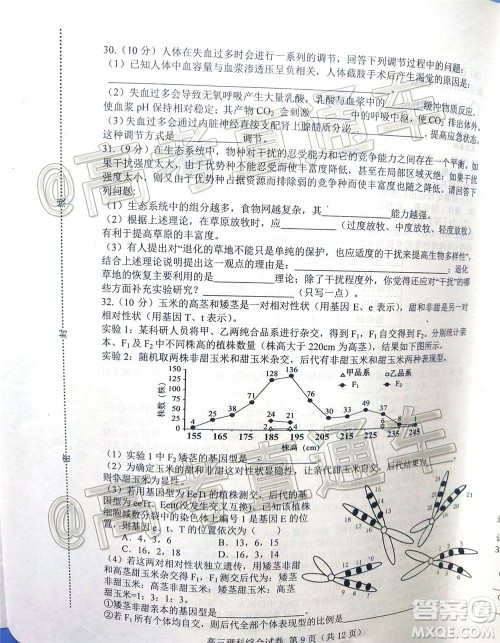 30.（10 分）人体在失血过多时会进行一系列的调节，回答下列调节过程中的问题：
（1）已知人体中血容量与血浆渗透压呈负相关，人体截肢手术后产生渴觉的原因是
（2）失血过多会导致无氧呼吸产生大量乳酸、乳酸与血浆中的 缓冲物质反应，
使血浆 pH 保持相对稳定；其产物 CO₂ 会刺激 中的呼吸中
（3）失血过多会通过内脏神经直接支配肾上腺髓质分泌 ，提高应急状态，
这种调节方式是 调节。
31.（9 分）在生态系统中，物种对干扰的忍受能力和它的竞争能力之间存在一个平衡，如
果干扰强度太大，由于优势种忍受干扰能力弱，甚至在局部区域灭绝；如果干扰
强度太小，则由于优势种占据资源而排挤竞争能力弱的物种，使丰富度下降。回答下
列问题：
（1）生态系统中的组分越多，食物网越复杂，其 能力越强。
（2）根据上述理论，在草原放牧时，应 （过度放牧、中度放牧、轻度放牧）
有利于提高草原的丰富度。
（3）有人提出对“退化的草地不能只是单纯的保护，也应适度的干扰来提高生物多样性”，
结合上述理论说明提出这一观点的理由是： ；退化
草地的恢复主要利用的是 理论；除了干扰程度外，你认为还可以从哪
些方面补充实验研究 （只写一点）。
32.（10 分）玉米的高茎和矮茎是一对相对性状（用基因 E、e 表示），甜和非甜是另一对
相对性状（用基因 T、t 表示）。
实验 1：某科研人员将甲、乙两纯合品系进行杂交，得到 F₁，F₁ 自交得到 F₂，分别统计亲
本、F₁ 及 F₂ 中不同株高的植株数量（株高大于 220cm 为高茎），结果如下图。
实验 2：随机取两株非甜玉米和甜玉米杂交，后代有非甜玉米和甜玉米两种表现型。
株数（株）
150
125
100
75
50
25
0
甲品系 乙品系
F₁ F₂
128 136
24 21
4
155 165 175 185 195 205 215 225 235 245
株高（cm）
（1）实验 1 中 F₂ 矮茎的基因型是
（2）为确定玉米的甜和非甜这对性状的显隐性，让亲代甜玉米自交，后代
（3）若用基因型为 EeTt 的植株测交，后代的基
因型为 EeTt、eett（没发生交叉互换），已知该
细胞减数分裂中的染色体上编号 1 是基因 E 的位
点，则基因 e、T、t 的位置依次为（ ）
A．16，2，18 B．13，6，14
C．4，16，18 D．2，13，14
（4）若用基因型相同的非甜矮茎玉米和基因型相同
的高茎甜玉米杂交得 F₁，F₁
高茎甜玉米：高茎非甜玉米：矮茎甜玉米：矮茎非甜
玉米=1：3：1：3。
①矮茎非甜亲本的基因型为
②若 F₁ 所有个体均自交，则 F₂ 全部个体表现型的比例是
高三理科综合试卷 第 9 页（共 12 页）
高考直通车
答案圈